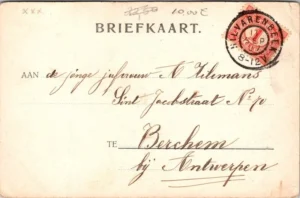 xxx.
BRIEFKAART.
HILVARENBEEK
8-12V
AAN de jonge jufvrouw N
Sint Jacobstraat No
TE Berchem
bij Antwerpen